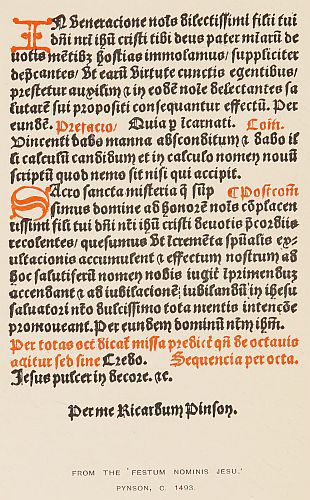 IN Veneracione nois dilectissimi filii tui
dni nri ihu cristi tibi deus pater miaru de
uotis metibz hostias immolamus/ suppliciter
depcantes/ vt earu virtute cunctis egentibus/
prestetur auxiliu & in eode noie delectantes sa
lutare sui propositi consequantur effectu. Per
eunde. Prefacio/ Quia p icarnati. Com.
Vincenti dabo manna absconditum & dabo il
li calculu candidum et in calculo nomen nouu
scriptu quod nemo sit nisi qui accipit.
SAcro sancta misteria q sup Postcom
simus domine ad honore nois coplacen
tissimi filii tui dni nri ihu cristi deuotis pcordiis
recolentes/ quesumus vt icremeta spualis ex-
ultacionis accumulent & effectum nostrum ad
hoc salutiferu nomen nobis iugit iprimenduz
accendant & ad iubilacione iubilandu in ihesu
saluatori nro dulcissimo tota mentis intencoe
promoueant. Per eundem dominu nrm ihm.
Per totas oct dicat missa predict qn de octauis
agitur sed sine Credo. Sequencia per octa.
Jesus pulcer in decore. &c.
Per me Ricardum Pinson.
FROM THE 'FESTUM NOMINIS JESU.'
PYNSON, C. 1493.